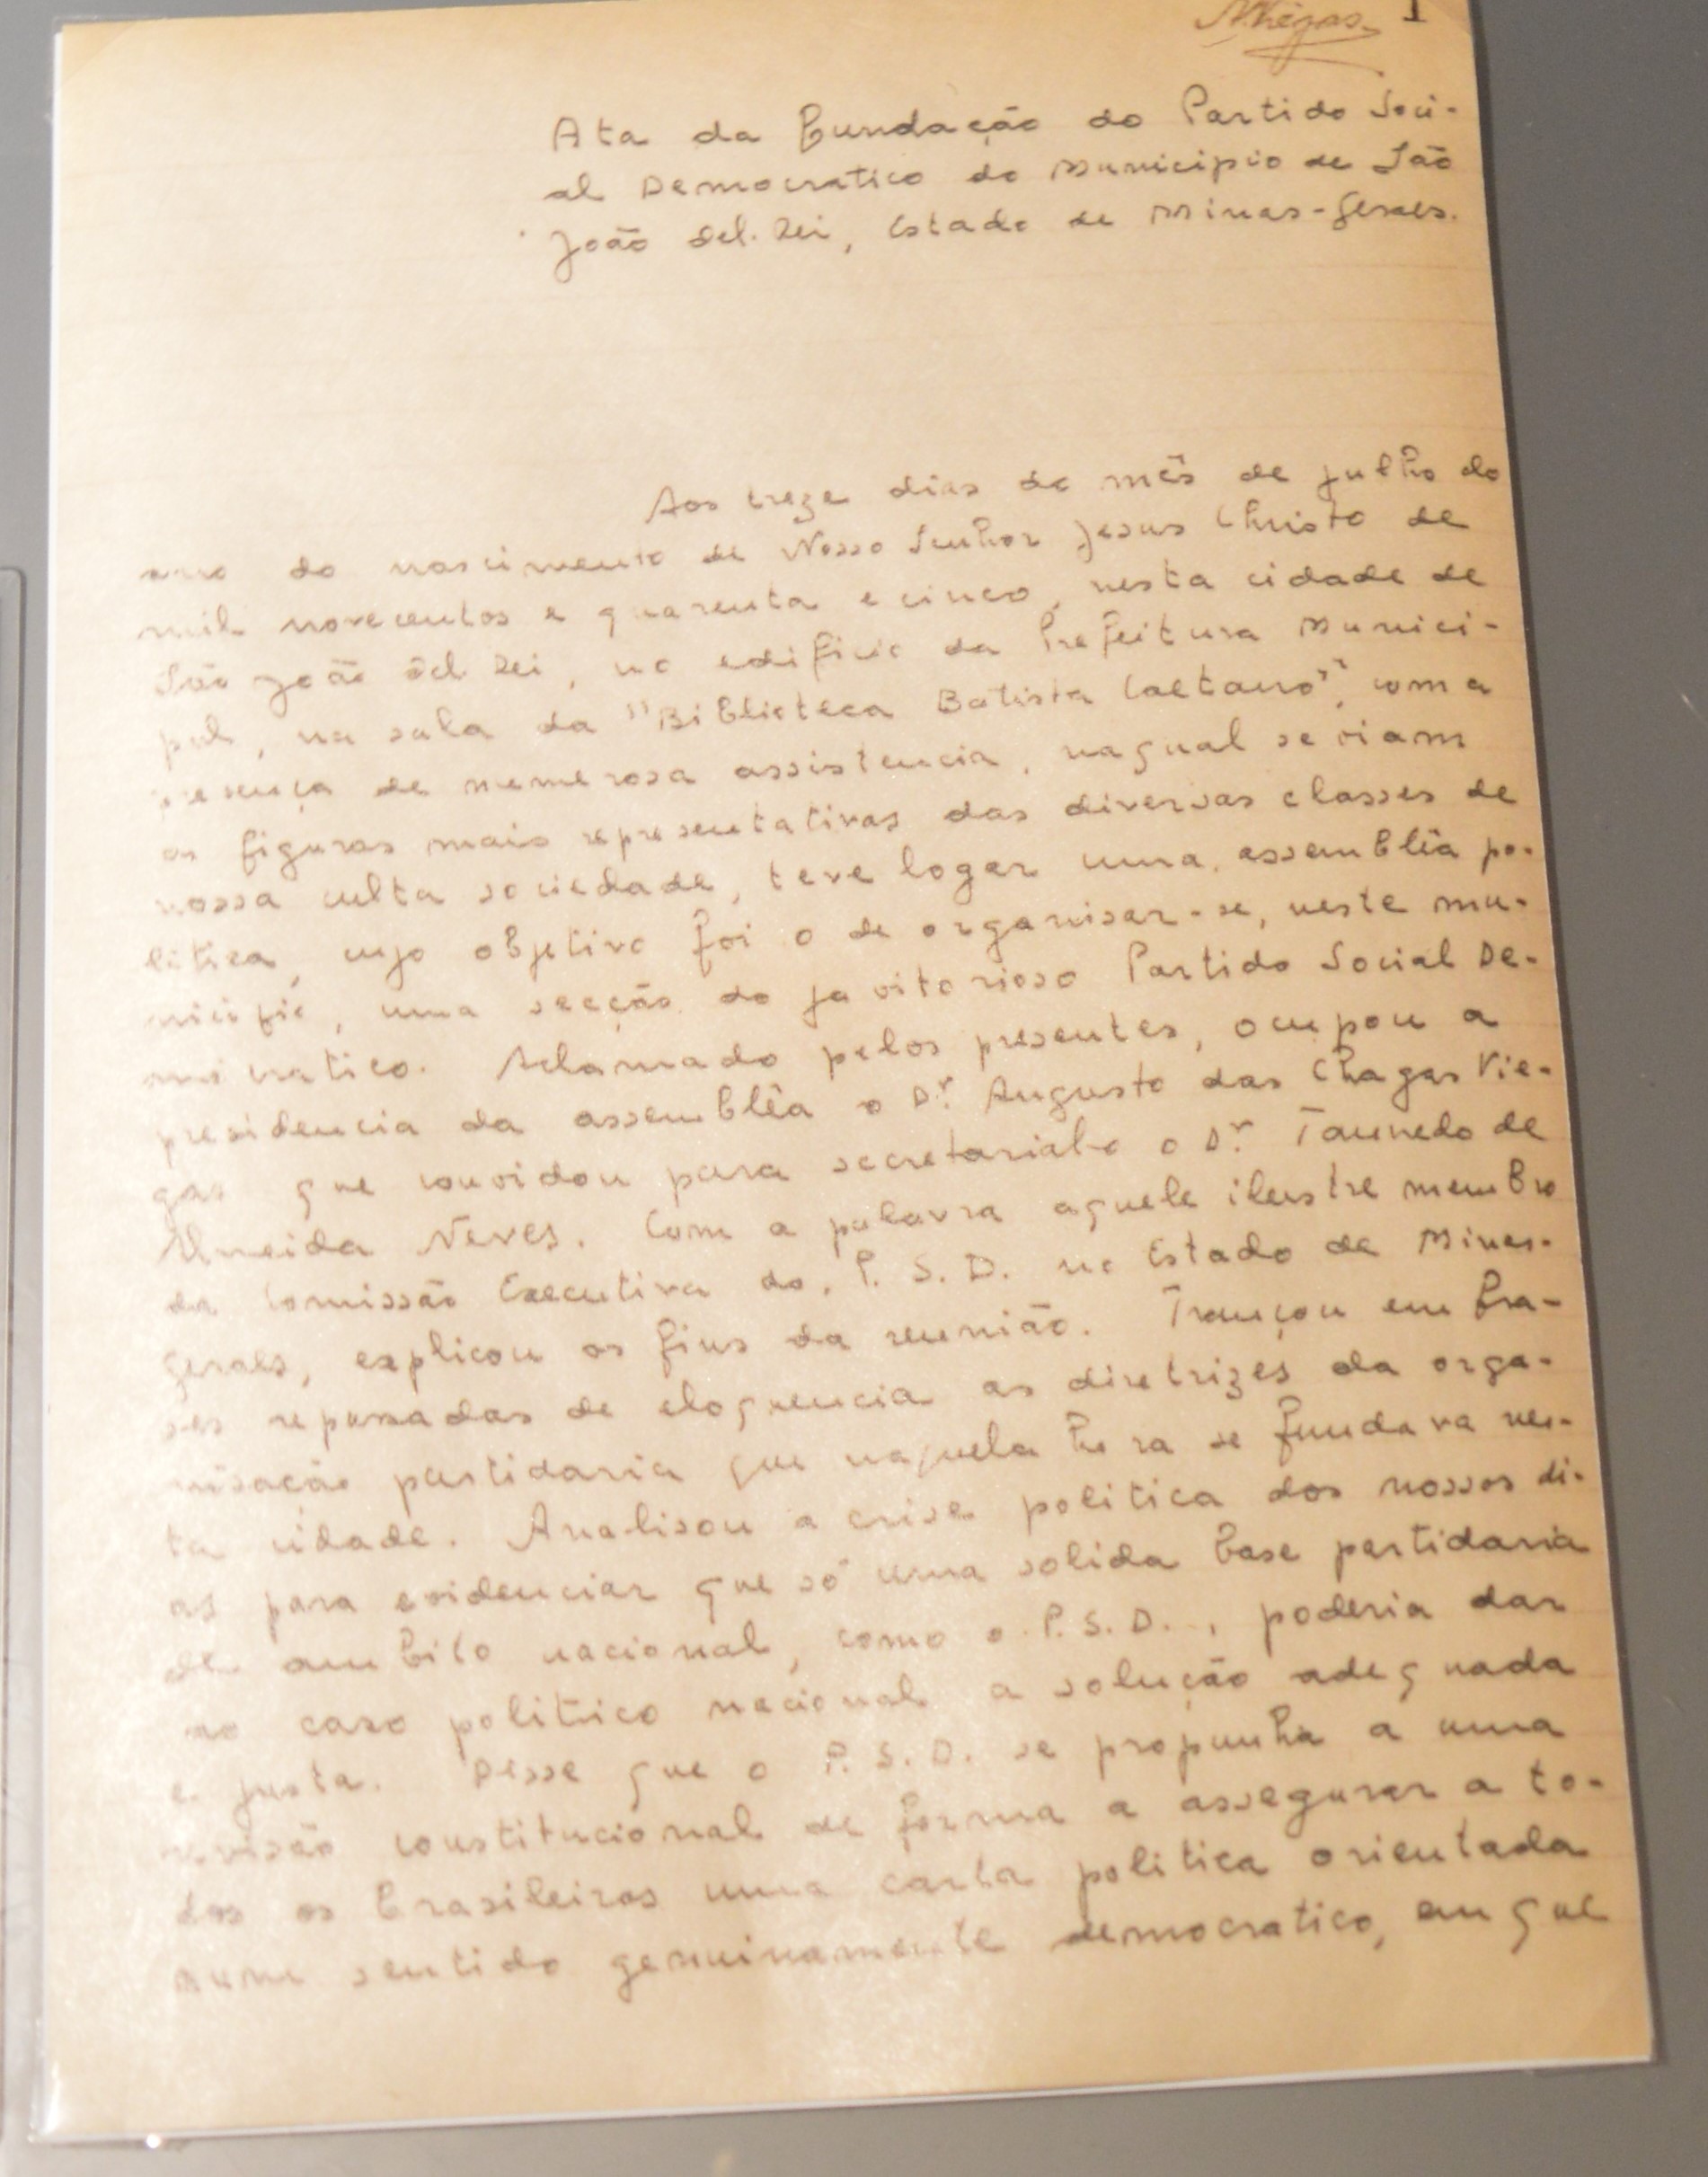 AViegas 1
Ata da fundação do Partido Soci-
al Democratico do Municipio de São
João del-Rei, Estado de Minas-Geraes.
Aos treze dias do mês de julho do
ano do nascimento de Nosso Senhor Jesus Christo de
mil novecentos e quarenta e cinco, nesta cidade de
São João del Rei, no edificio da Prefeitura Munici-
pal, na sala da "Biblioteca Batista Caetano", com a
presença de numerosa assistencia, na qual se viam
as figuras mais representativas das diversas classes de
nossa culta sociedade, teve logar uma assembléa po-
litica, cujo objetivo foi o de organisar-se, neste mu-
nicipio, uma secção do já vitorioso Partido Social De-
mocratico. Aclamado pelos presentes, ocupou a
presidencia da assembléa o Dr. Augusto das Chagas Vie-
gas que convidou para secretarial-o o Dr. Tancredo de
Almeida Neves. Com a palavra aquele ilustre membro
da Comissão Executiva do P. S. D. no Estado de Minas-
Geraes, explicou os fins da reunião. Trançou em fra-
ses repassadas de eloquencia as diretrizes da orga-
nisação partidaria que naquela hora se fundava nes-
ta cidade. Analisou a crise politica dos nossos di-
as para evidenciar que só uma solida base partidaria
de ambito nacional, como o P. S. D., poderia dar
ao caso politico nacional a solução adequada
e justa. Disse que o P. S. D. se propunha a uma
revisão constitucional de forma a assegurar a to-
dos os brasileiros uma carta politica orientada
num sentido genuinamente democratico, em que